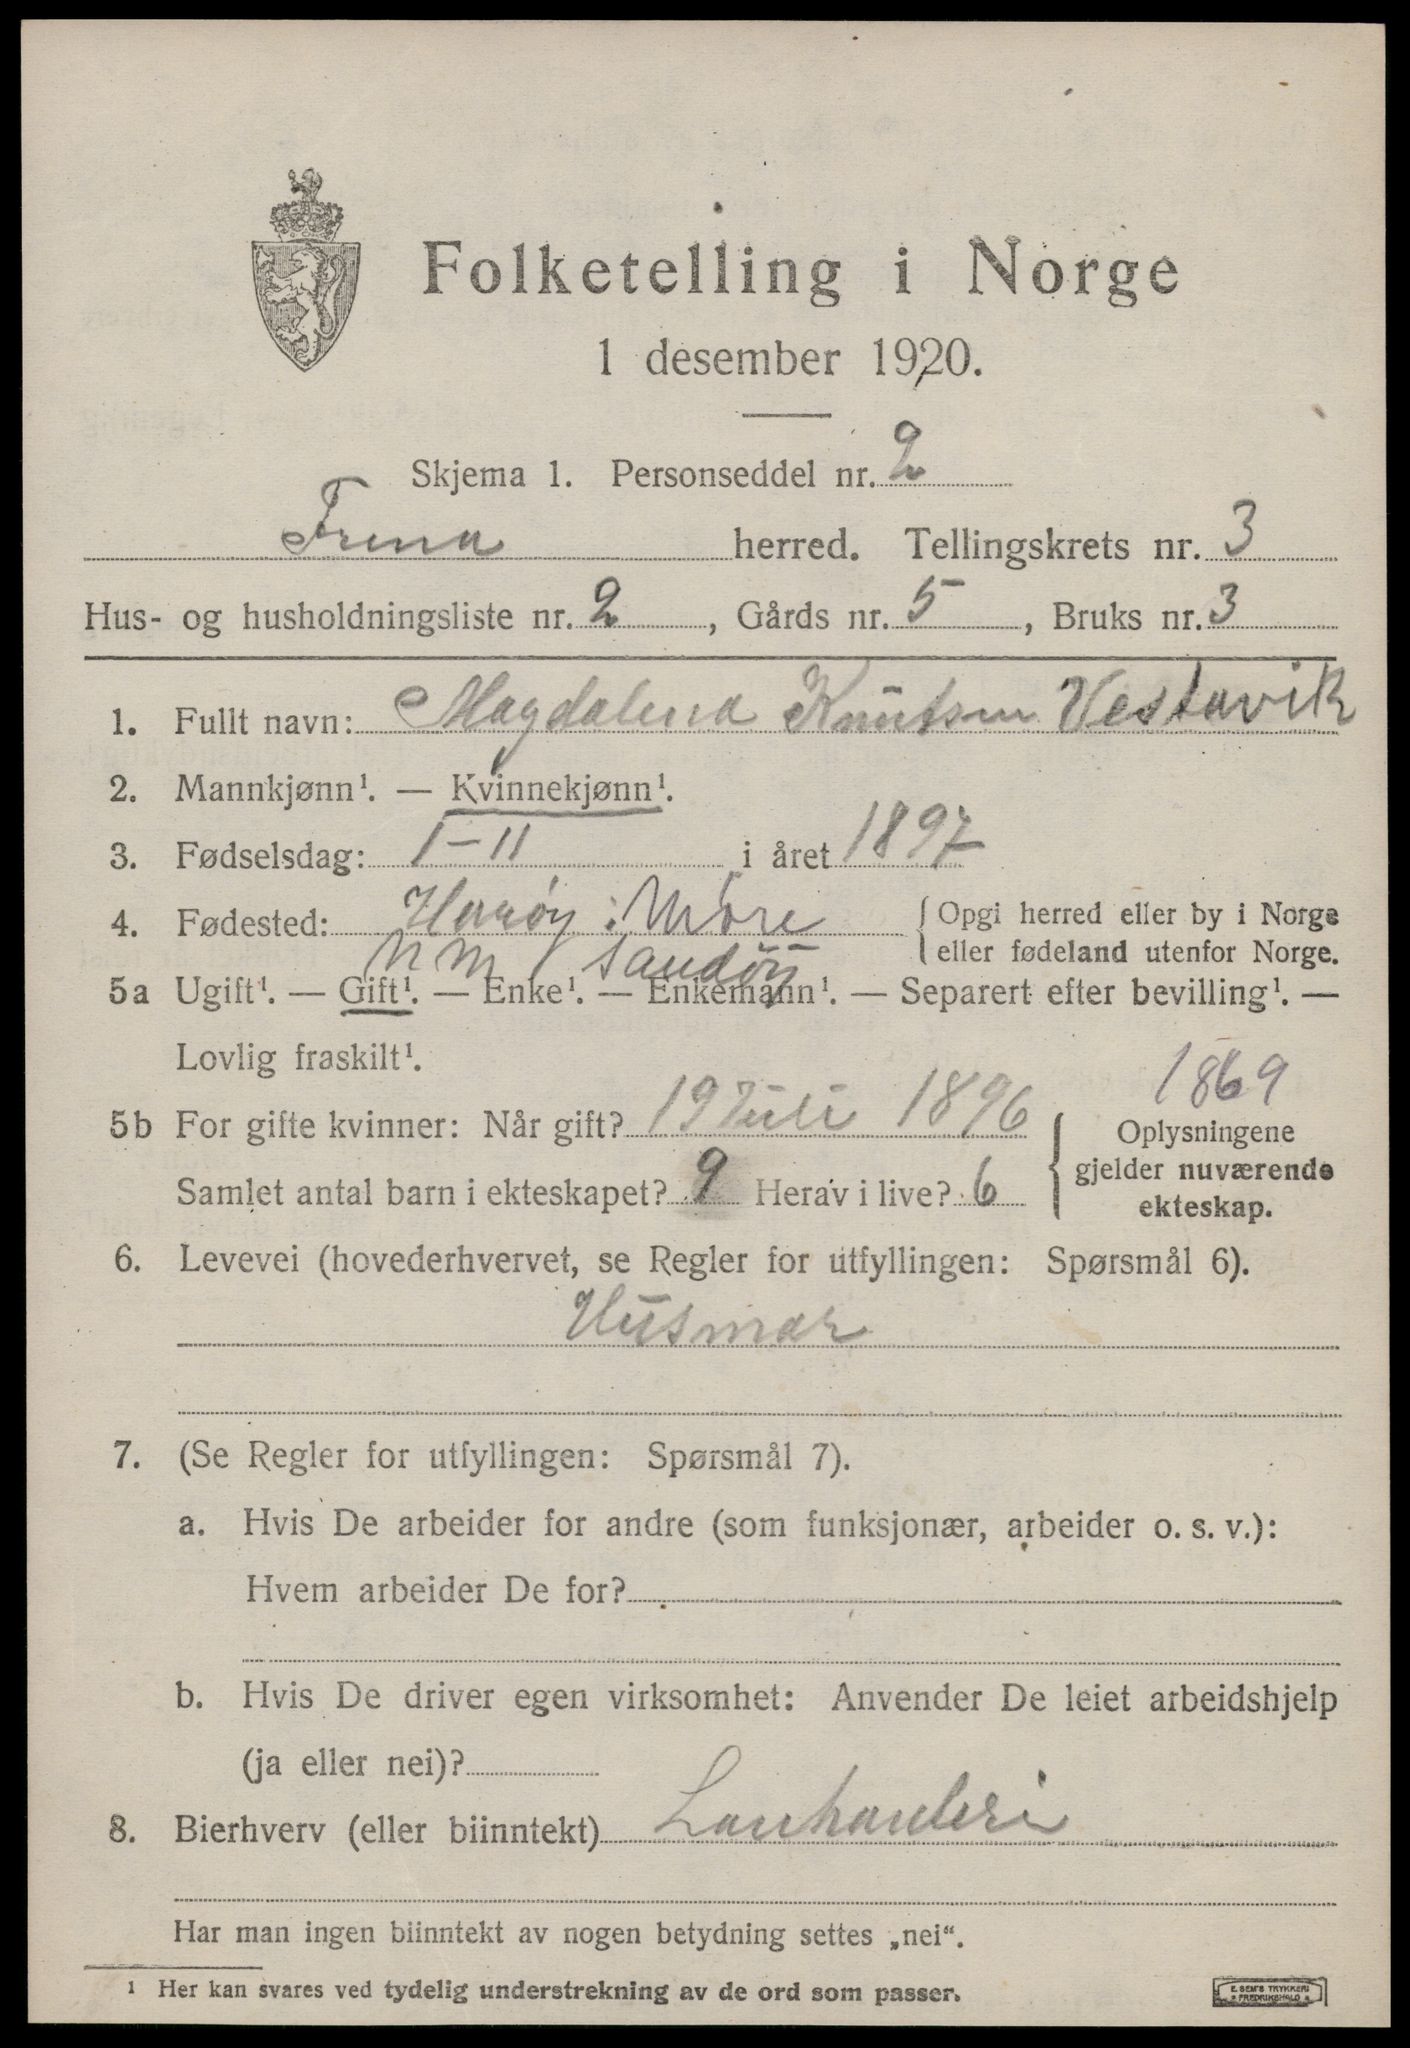 Folketelling i Norge
1 desember 1920.
Skjema 1. Personseddel nr. 2
Frena herred. Tellingskrets nr. 3
Hus- og husholdningsliste nr. 2, Gårds nr. 5, Bruks nr. 3
1. Fullt navn: Magdalena Knutsen Vestavik
2. Mannkjønn¹. — Kvinnekjønn¹.
3. Fødselsdag: 1-11 i året 1897
4. Fødested: Harøy i Møre { Opgi herred eller by i Norge
NM / Sandøy eller fødeland utenfor Norge.
5a Ugift¹. — Gift¹. — Enke¹. — Enkemann¹. — Separert efter bevilling¹. —
Lovlig fraskilt¹.
1869
5b For gifte kvinner: Når gift? 19 Juli 1896
Samlet antal barn i ekteskapet? 9 Herav i live? 6
Oplysningene
gjelder nuværende
ekteskap.
6. Levevei (hovederhvervet, se Regler for utfyllingen: Spørsmål 6).
Husmor
7. (Se Regler for utfyllingen: Spørsmål 7).
a. Hvis De arbeider for andre (som funksjonær, arbeider o. s. v.):
Hvem arbeider De for?
b. Hvis De driver egen virksomhet: Anvender De leiet arbeidshjelp
(ja eller nei)?
8. Bierhverv (eller biinntekt) Lanhanleri
Har man ingen biinntekt av nogen betydning settes „nei“.
¹ Her kan svares ved tydelig understrekning av de ord som passer.
E. SEM'S TRYKKERI
FREDRIKSHALD